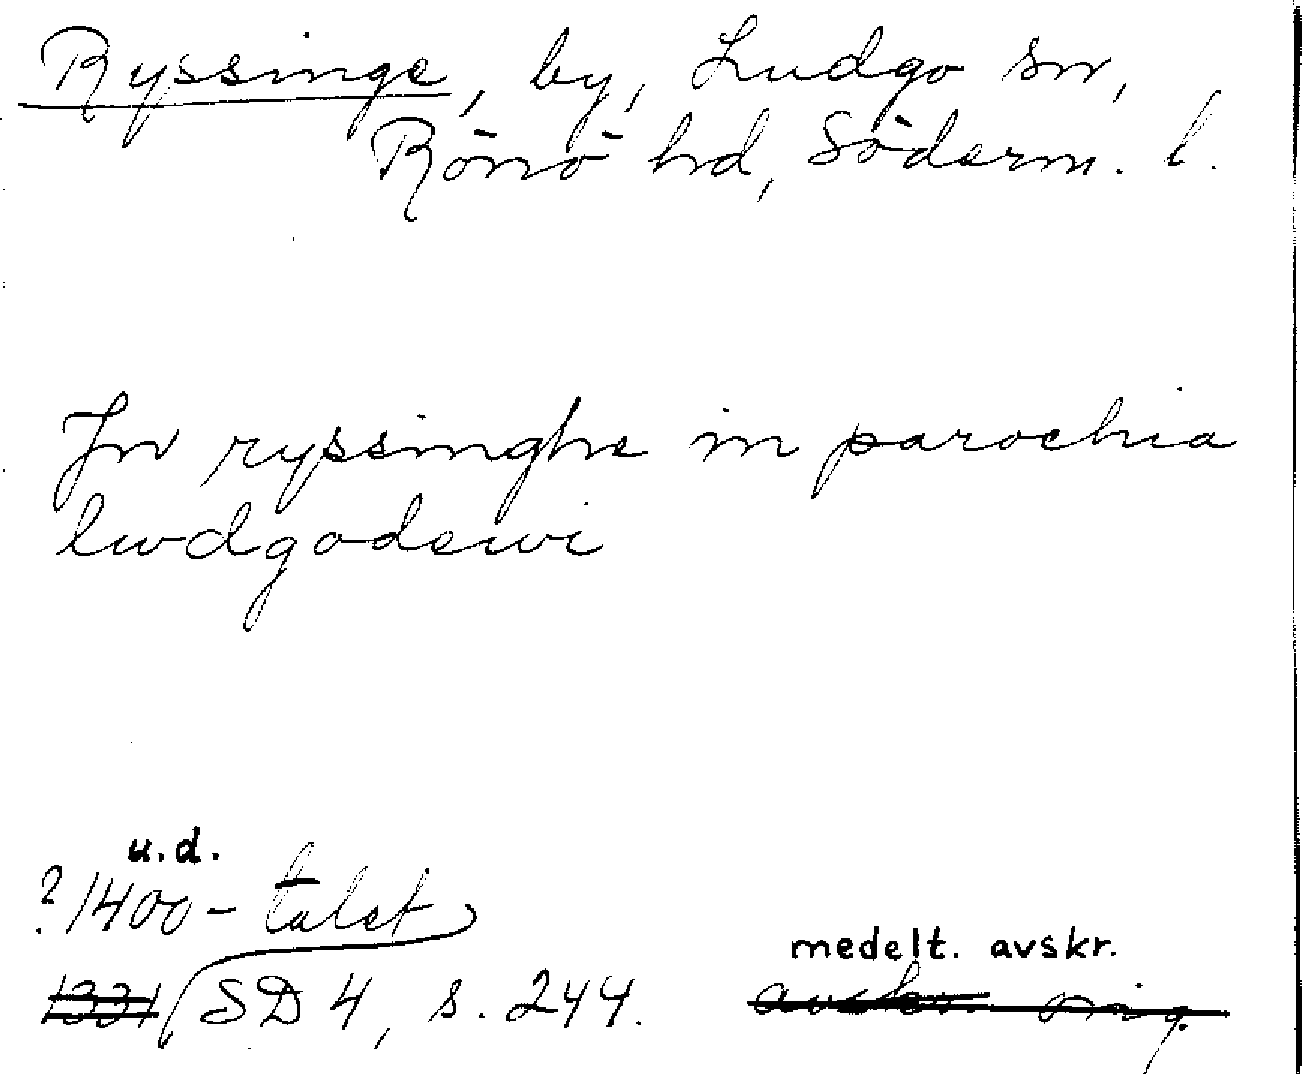 Ryssinge, by, Ludgo sn,
Rönö hd, Söderm. l.
In ryssinghe in parochia
lwdgodswi
u.d.
? 1400-talet
1331 SD 4, s. 244.
medelt. avskr.
avskr. orig.